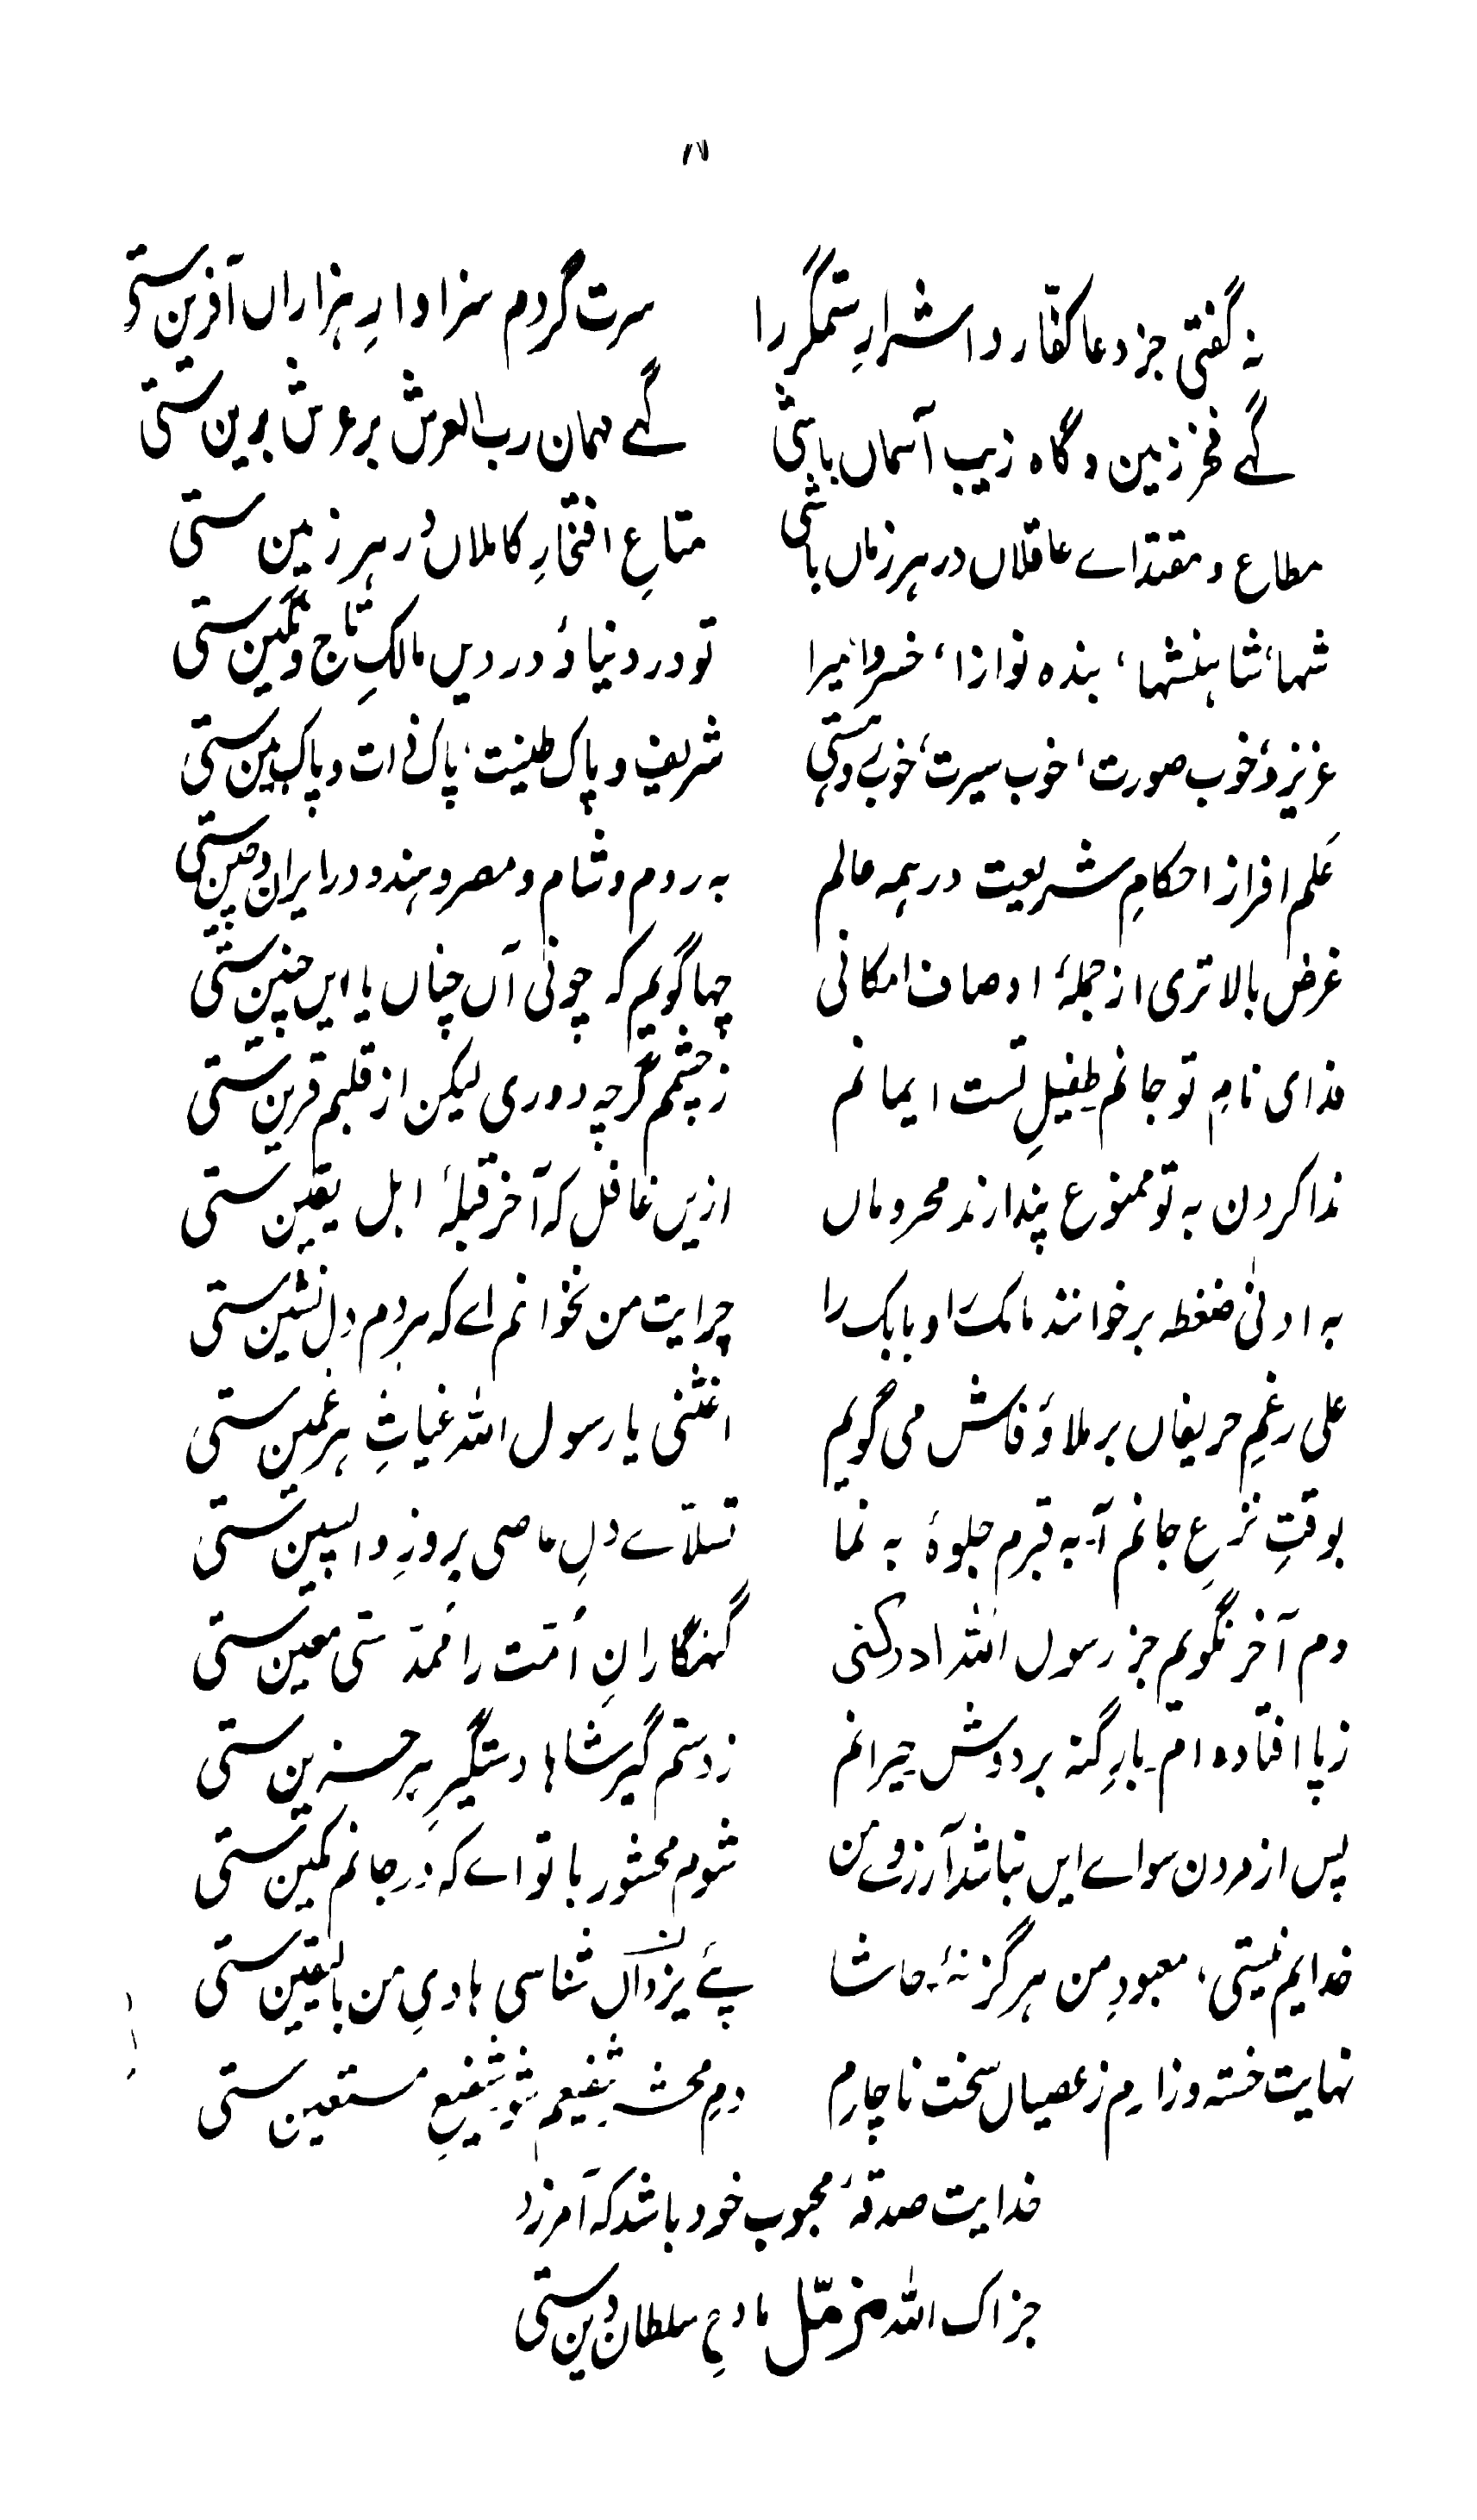 ۸۷
نہ گفتی جز دعا کفّار و اشرارِ ستمگر را سرت گردم سزاوارِ ہزاراں آفرین ستی
گہے فخرِ زمین و گاہ زیب آسماں باشی گہے مہمان رب العرش بر عرش برین ستی
مطاع و مقتدائے عاقلاں در ہر زماں باشی متاعِ افتخارِ کاملاں در ہر زمین ستی
شہا، شاہنشہا، بندہ نوازا، خسروا میرا تو در دنیا و در دیں مالکِ تاج و نگین ستی
عزیز و خوب صورت، خوب سیرت، خوب تر ستی شریف و پاک طینت، پاک ذات و پاک بین ستی
عَلم افراز احکامِ شریعت در ہمہ عالم بہ روم و شام و مصر و ہند و در ایران و چین ستی
غرض بالاتری از جملۂ اوصاف امکانی چہا گویم کہ چونی آں چناں یا ایں چنین ستی
فدای نامِ تو جانم طفیلِ تست ایمانم ز چشمم گرچہ دوری لیکن از قلبم قرین ستی
ندا کردن بہ تو ممنوع پندارند محروماں ازیں غافل کہ آخر قبلۂ اہل یقین ستی
بہ ادنٰی ضغطہ برخوانند مامک را و بابک را چرایت من نخوانم اے کہ ہر دم دل نشین ستی
علی رغمِ حریفاں برملا و فاش می گویم اغثنی یا رسول اللہ غیاثِ ہر غمین ستی
بوقتِ نزعِ جانم آ۔ بہ قبرم جلوۂ بہ نما تسلّائے دلِ عاصی بروزِ واپسین ستی
دم آخر نگویم جز رسول اللہ ادرکنی گنہگارانِ اُمّت را مُمدّ ستی معین ستی
ز پا افتادہ ام۔ بارِ گنہ بر دوش۔ حیرانم ز دستم گیر شاہا دستگیرِ ہر حزین ستی
پس از مردن سوائے ایں نباشد آرزوئے من شوم محشور با تو اے کہ در جانم مکین ستی
خدایم نیستی، معبودِ من ہرگز نۂ۔ حاشا پئے یزداں شناسی ہادیِ من بالیقین ستی
نہایت خستہ و زارم ز عصیاں سخت ناچارم دمِ محشر شفیعم شو شفیعِ مستعین ستی
خدایت صدقۂ محبوب خود باشد کہ آمرزد
جزاک اللہ مزمّل مادحِ سلطانِ دین ستی